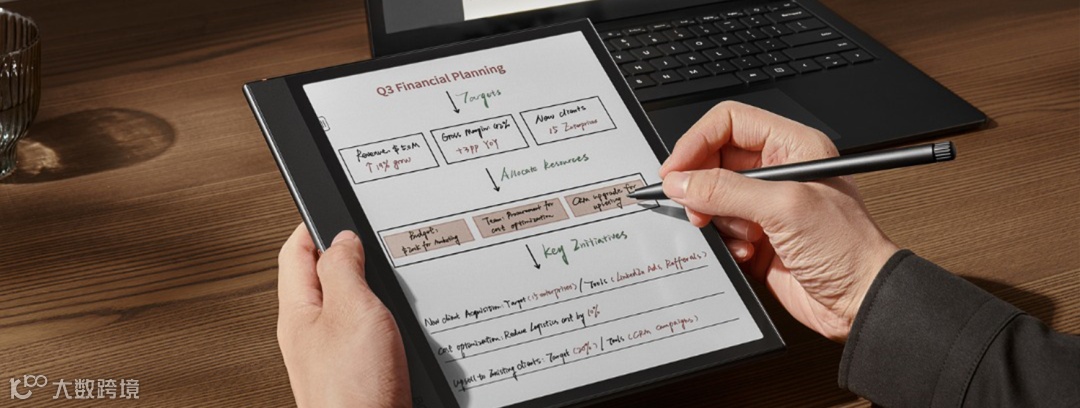 Q3 Financial Planning
Targets
Revenue $
↑ 15% grow
Gross Margin: 42%
+3pp YoY
New clients
15 Enterprises
Allocate Resources
Budget:
for Marketing
Team: Procurement for
cost optimization
CRM upgrade for
upselling
Key Initiatives
New client Acquisition: Target (15 enterprises) / Tools (LinkedIn Ads, Refferals)
Cost optimization: Reduce Logistics cost by 10%
Upsell to Existing clients: Target (20%) / Tools (CRM campaigns)
大数跨境